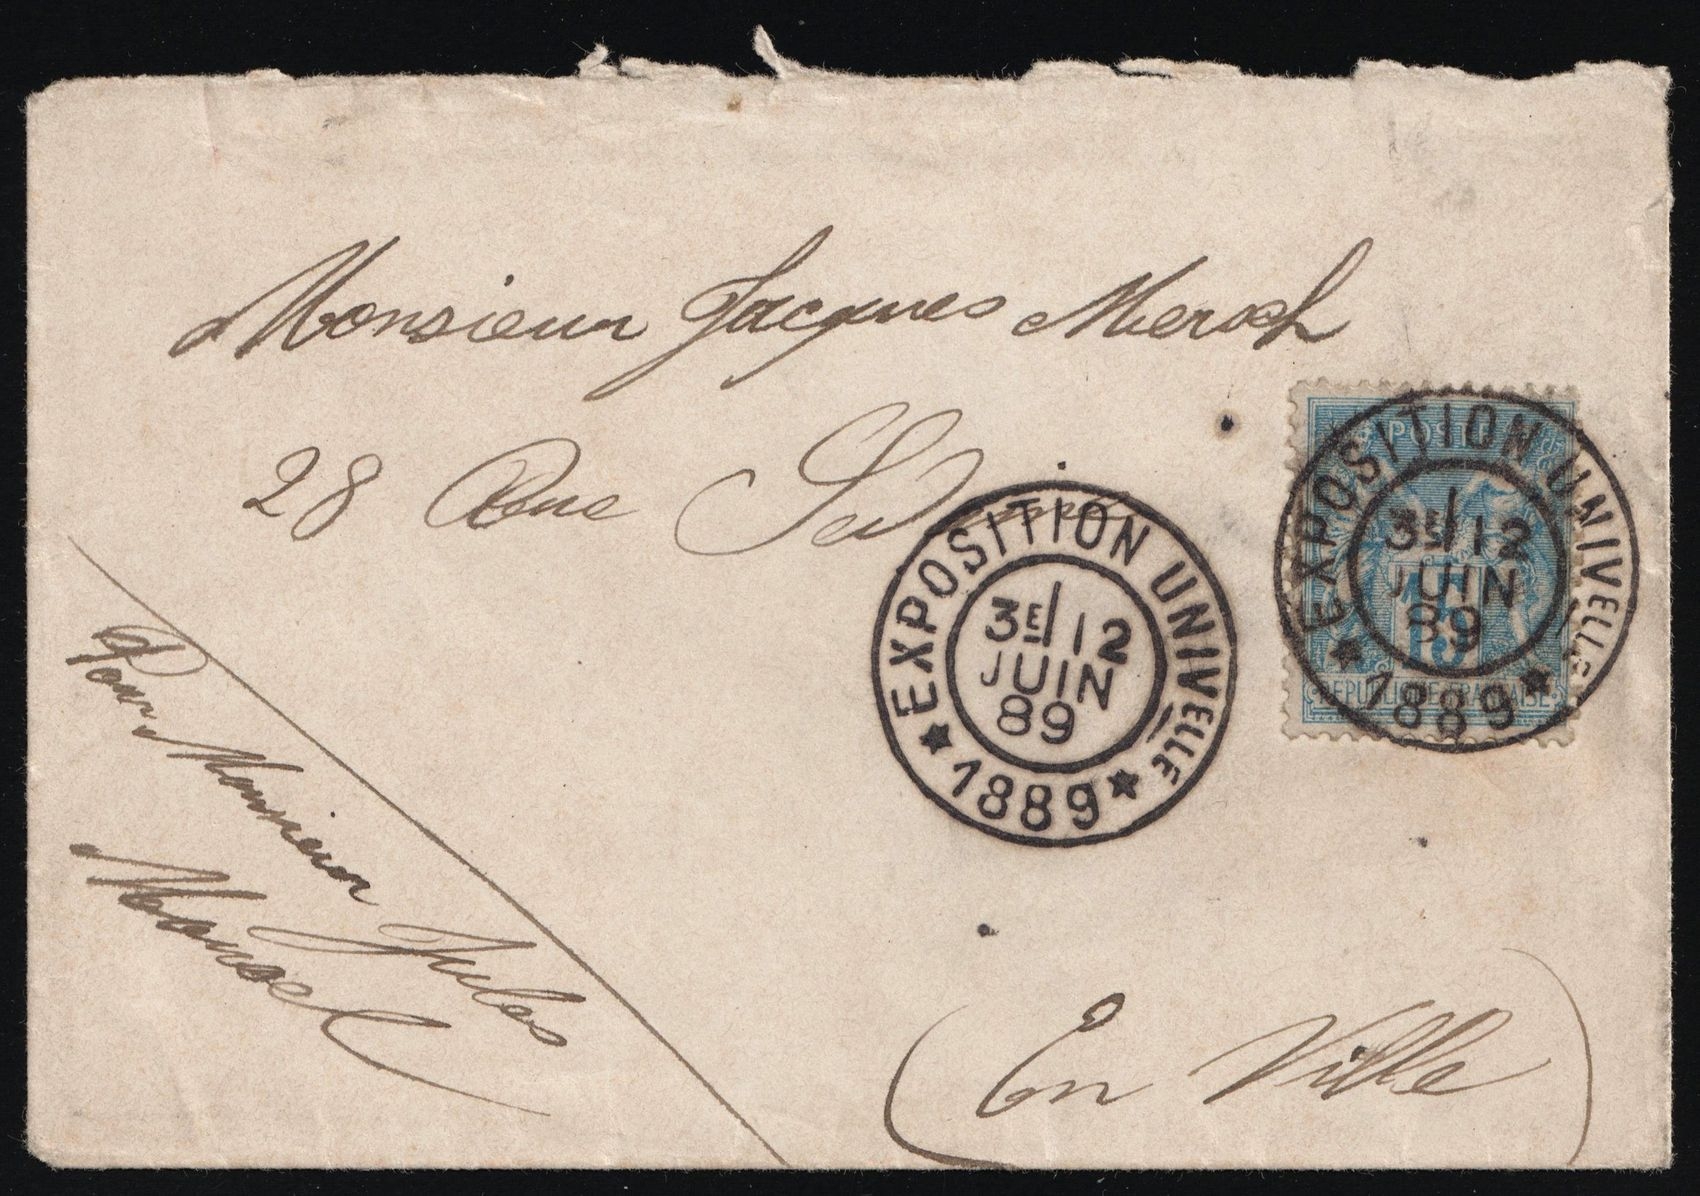 Monsieur Jacques Mersch
28 Rue
Pour Monsieur Jules
(En Ville)
EXPOSITION UNIVELLE
3E/12
JUIN
89
★ 1889 ★
POSTE
15
REPUBLIQUE FRANCAISE
EXPOSITION UNIVELLE
3E/12
JUIN
89
★ 1889 ★